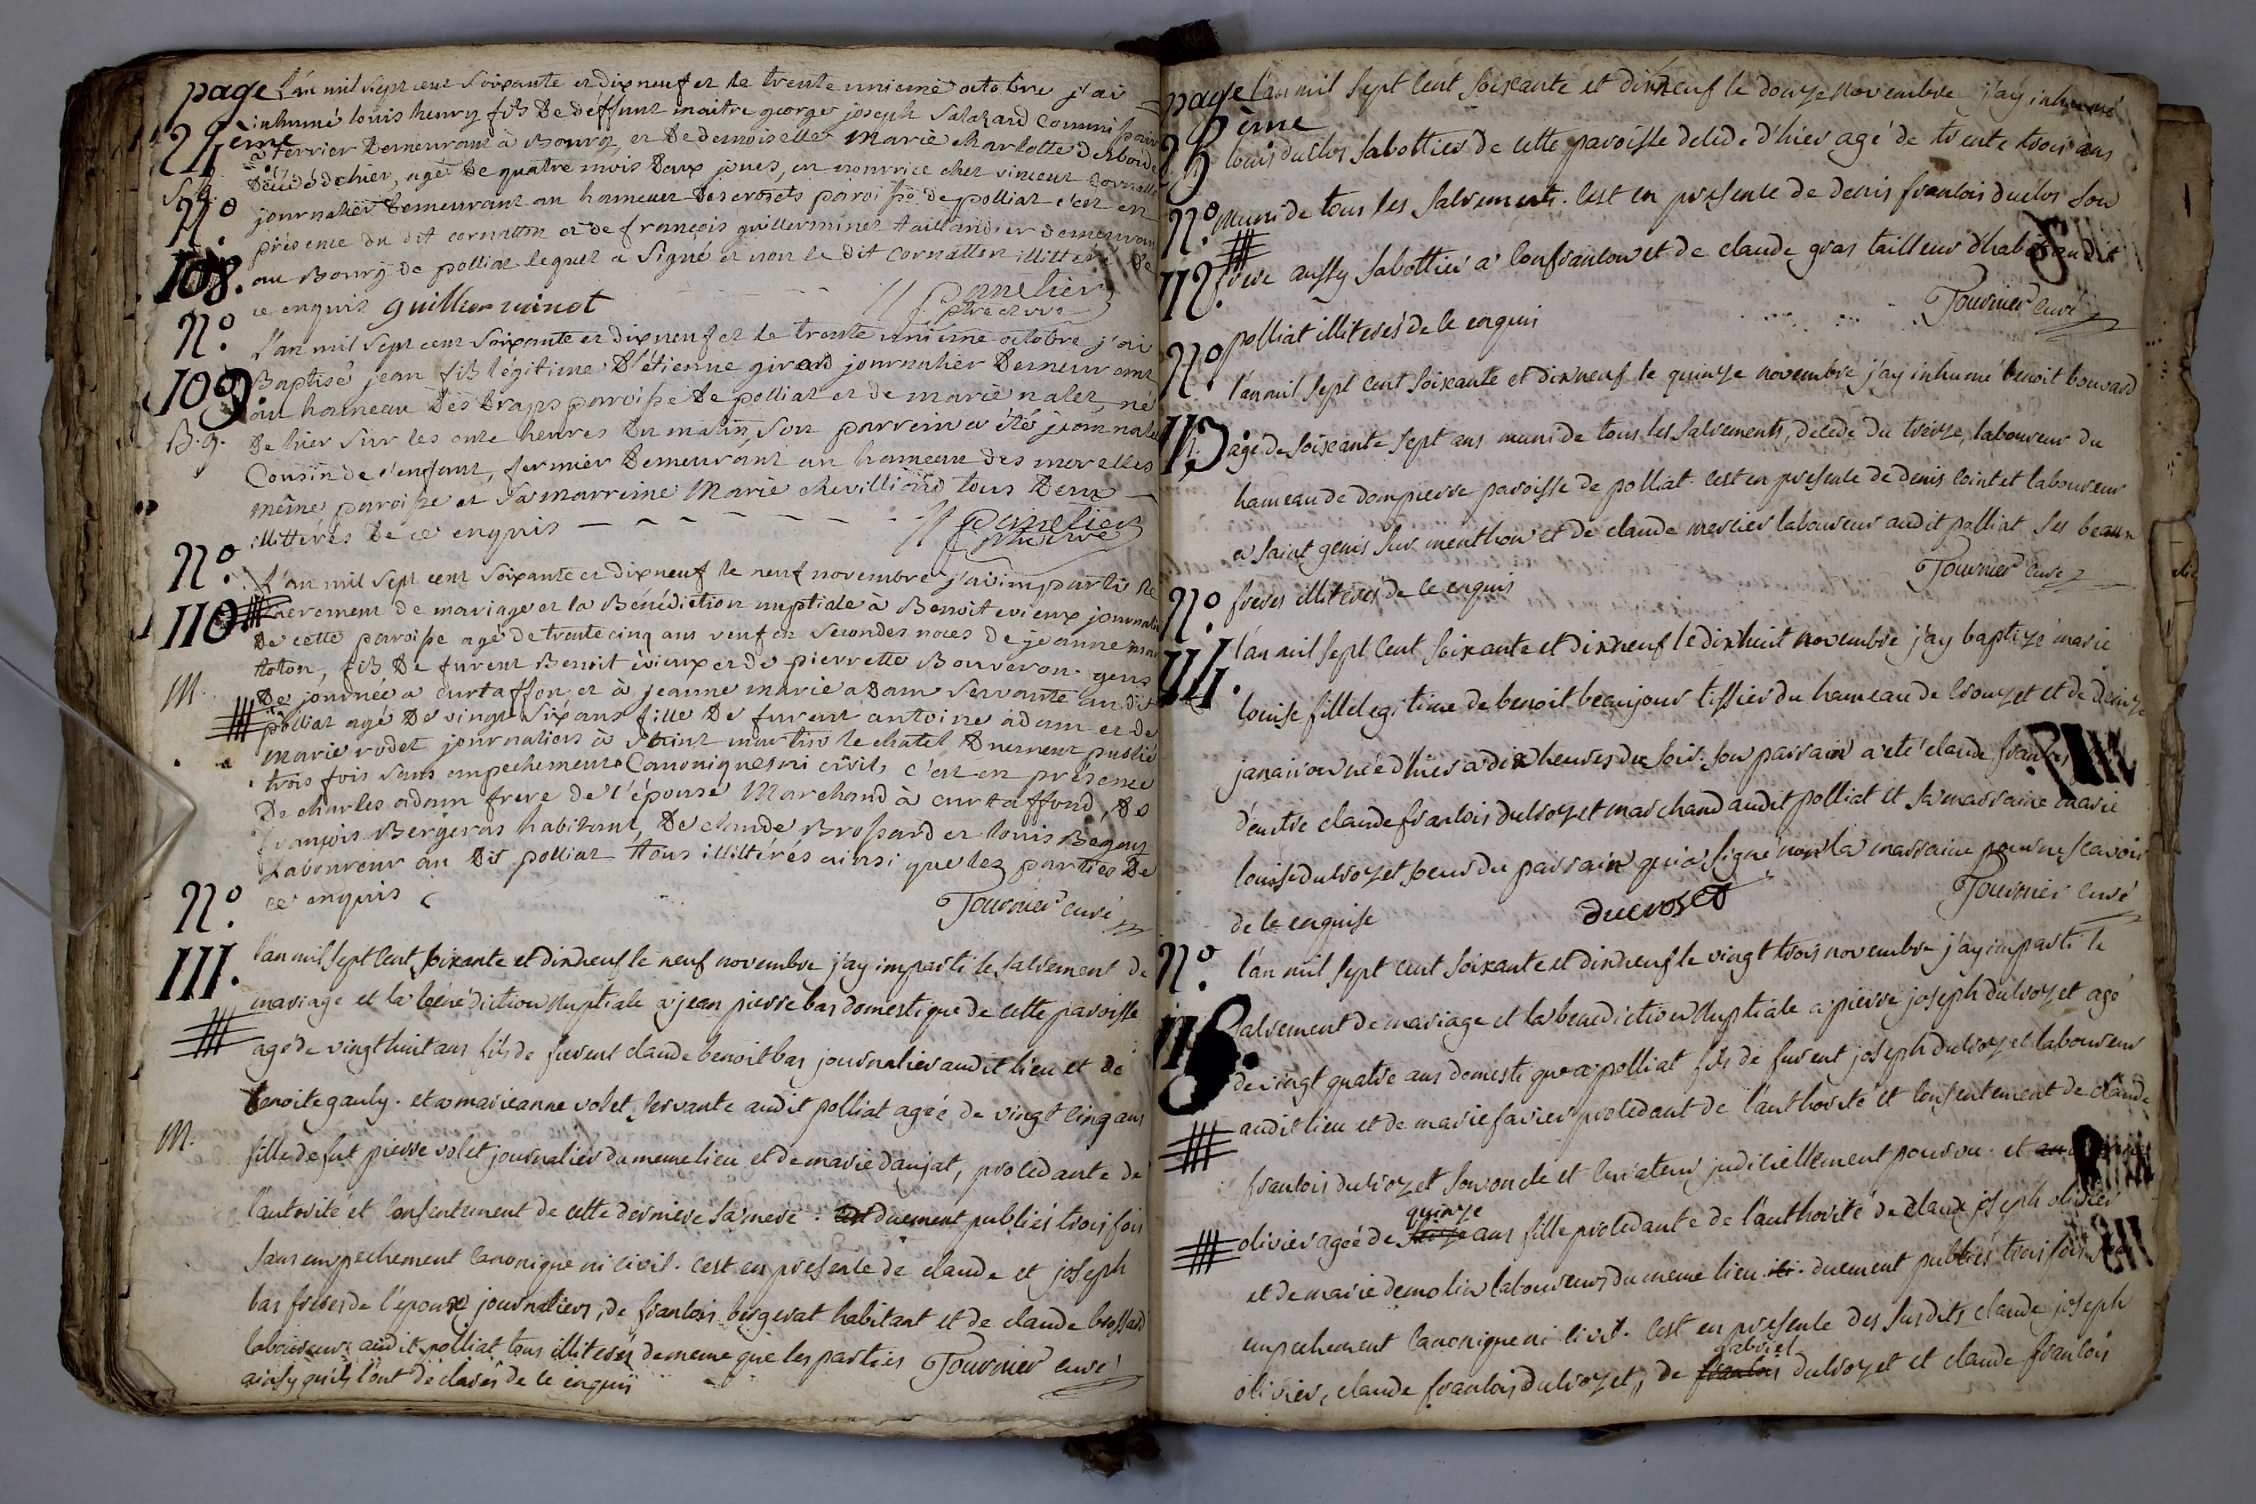 page
24ème
S. g.
N.º
108.
L'an mil sept cent soixante et dixneuf et le trente unieme octobre j'ai
inhumé louis henry fils de deffunt maitre george joseph Salazard Commissaire
a terrier demeurant à Bourg et de demoiselle Marie charlotte
décédé d'hier, agé de quatre mois deux jours, en nourrice chez vincent Cornatton
journalier demeurant au hameau des crosets paroisse de polliat c'est en
présence du dit cornatton et de françois guillerminet taillandier demeurant
au Bourg de polliat lequel a signé et non le dit cornatton illitteré de
ce enquis guillerminet
N.º
109.
B. g.
L'an mil sept cent soixante et dixneuf et le trente unieme octobre j'ai
Baptisé jean fils légitime d'étienne girard journalier demeurant
au hameau des Braps paroisse de polliat et de marie nalet né
de hier sur les onze heures du matin, son parrein a été jean nalet
Cousin de l'enfant, fermier demeurant au hameau des morelles
même paroisse et sa marreine Marie chevilliard tous deux
illittérés de ce enquis
N.º
110
M.
L'an mil sept cent soixante et dixneuf le neuf novembre j'ai imparti le
sacrement de mariage et la Bénédiction nuptiale à Benoit evieux journalier
de cette paroisse agé de trente cinq ans veuf en secondes noces de jeanne
toton, fils de furent Benoit évieux et de pierrette Bouveron gens
de journée a curtaffon et à jeanne marie adam servante au dit
polliat agé de vingt six ans fille de furent antoine adam et de
marie rodet journaliers à saint martin le chatel duement publié
trois fois sans empechements Canoniques ni civils c'est en présence
de charles adam frere de l'épouse Marchand à curtaffond, de
françois Bergeras habitant, de claude Brossard et louis
Laboureur au dit polliat tous illittérés ainsi que les parties de
ce enquis
Tournier curé
N.º
111.
M.
l'an mil sept cent soixante et dixneuf le neuf novembre j'ay imparti le sacrement de
mariage et la benediction nuptiale a jean pierre bas domestique de cette paroisse
agé de vingt huit ans fils de furent claude benoit bas journalier audit lieu et de
benoite gauly. et a marieanne volet, servante audit polliat agée de vingt cinq ans
fille de fut pierre volet journalier du meme lieu et de marie daujat, procedante de
l'autorité et consentement de cette derniere sa mere. duement publiés trois fois
sans empechement canonique ni civil. c'est en presence de claude et joseph
bas freres de l'epoux journaliers, de francois bergerat habitant et de claude brossard
laboureurs audit polliat tous illiterés de meme que les parties Tournier curé
ainsy qu'ils l'ont declarés de ce enquis
page
25ème
N.º
112.
l'an mil sept cent soixante et dixneuf le douze novembre j'ay inhumé
louis duclos sabottier de cette paroisse decedé d'hier agé de trente trois ans
muni de tous les sacrements. c'est en presence de denis francois duclos son
frere aussy sabottier a confrancon et de claude gras tailleur d'habits audit
polliat illiterés de ce enquis
Tournier curé
N.º
113.
l'an mil sept cent soixante et dixneuf le quinze novembre j'ay inhumé benoit bouvard
agé de soixante sept ans muni de tous les sacrements, decedé du treize, laboureur du
hameau de dompierre paroisse de polliat. c'est en presence de denis cointet laboureur
a saint genis sur menthon et de claude mercier laboureur audit polliat ses beaux
freres illiterés de ce enquis
Tournier curé
N.º
114.
l'an mil sept cent soixante et dixneuf le dixhuit novembre j'ay baptizé marie
louise fille legitime de benoit beaujour tissier du hameau de crouzet et de denize
janairon née d'hier a dix heures du soir. son parrain a été claude francois
d'eustre claude francois ducrozet marchand audit polliat et sa marraine marie
louise ducrozet soeur du parrain qui a signé non la marraine pour ne scavoir
de ce enquise
ducroset
Tournier curé
N.º
115.
l'an mil sept cent soixante et dixneuf le vingt trois novembre j'ay imparti le
sacrement de mariage et la benediction nuptiale a pierre joseph ducrozet agé
de vingt quatre ans domestique a polliat fils de furent joseph ducrozet laboureur
audit lieu et de marie favier procedant de l'authorité et consentement de claude
francois ducrozet son oncle et curateur judiciellement pourvu. et
olivier agée de quinze ans fille procedante de l'authorité de claude joseph olivier
et de marie demolin laboureurs du meme lieu. duement publiés trois fois sans
empechement canonique ni civil. c'est en presence des susdits claude joseph
olivier, claude francois ducrozet, de gabriel ducrozet et claude francois